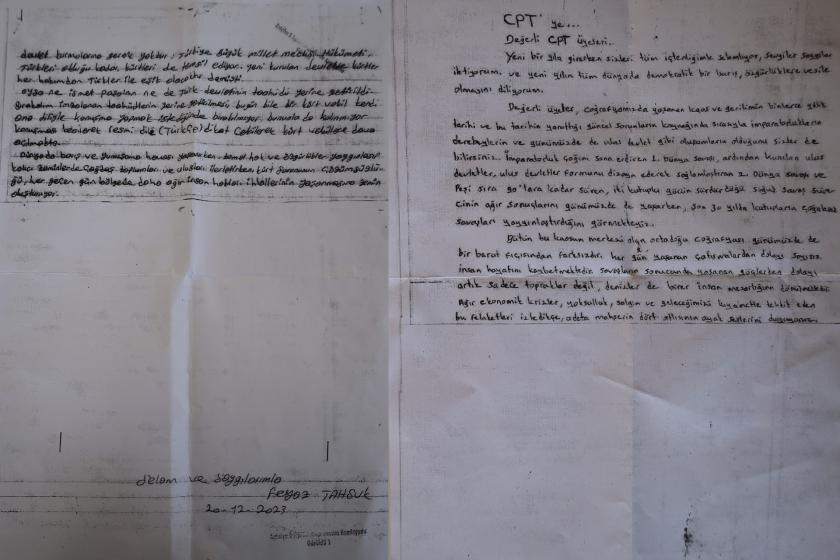 devlet kurmalarına gerek yoktur, Türkiye Büyük millet meclisi hükümeti,
Türkleri olduğu kadar, kürtleri de temsil ediyor. yeni kurulan devlette kürtler
her bakımdan Türkler ile eşit olacaktır demişti.
oysa ne ismet paşaları ne de Türk devletinin taahüdü yerine getirildi
bırakalım imzalanan taahütlerin yerine getirilmesi bugün bile bir kürt vekil kendi
ana diliyle konuşma yapmak istediğinde
konuşması kesilerek resmi dile (Türkçe) dikat çekilerek kürt
açılmakta.
Dünyada barış ve yumuşama havası yaşanırken, temel hak ve özgürlükler
toplumları ve ulusları ilerletirken kürt
ğü, her geçen gün bölgede daha ağır insan hakları ihlallerinin yaşanmasına zemin
oluşturuyor.
Selam ve Saygılarımla
Feyaz TAHSUK
20-12-2023
CPT' ye...
Değerli CPT üyeleri..
Yeni bir yıla girerken sizleri tüm içtenliğimle selamlıyor, sevgiler saygılar
iletiyorum. ve yeni yılın tüm dünyada demokratik bir barış, özgürlüklere vesile
olmasını diliyorum.
Değerli üyeler, coğrafyamızda yaşanan kaos ve gerilimin binlerce yıllık
tarihi ve bu tarihin yarattığı güncel sorunların kaynağında sırasıyla imparatorlukların
derebeylerin ve günümüzde de ulus devlet gibi oluşumların olduğunu sizler de
bilirsiniz. İmparatorluk çağını sona erdiren 1. Dünya savaşı, ardından kurulan ulus
devletler, ulus devletler formunu dizayn ederek sağlamlaştıran 2. Dünya savaşı ve
peşi sıra 90'lara kadar süren, iki kutuplu gücün sürdürdüğü soğuk savaş süre
cinin ağır sonuçlarını günümüzde de yaşarken, son 30 yılda kutupların çoğalarak
savaşları yaygınlaştırdığını görmekteyiz.
Bütün bu kaosun merkezi olan ortadoğu coğrafyası günümüzde de
bir barut fıçısından farksızdır. her gün yaşanan çatışmalardan dolayı sayısız
insan hayatını kaybetmektedir savaşların sonucunda yaşanan göçlerden dolayı
artık sadece topraklar değil, denizler de birer insan mezarlığına dönüşmektedir.
Ağır ekonomik krizler, yoksulluk, salgın ve geleceğimizi kıyametle tehtit eden
bu felaketleri izledikçe, adeta mahşerin dört atlısının ayak seslerini duyuyoruz.